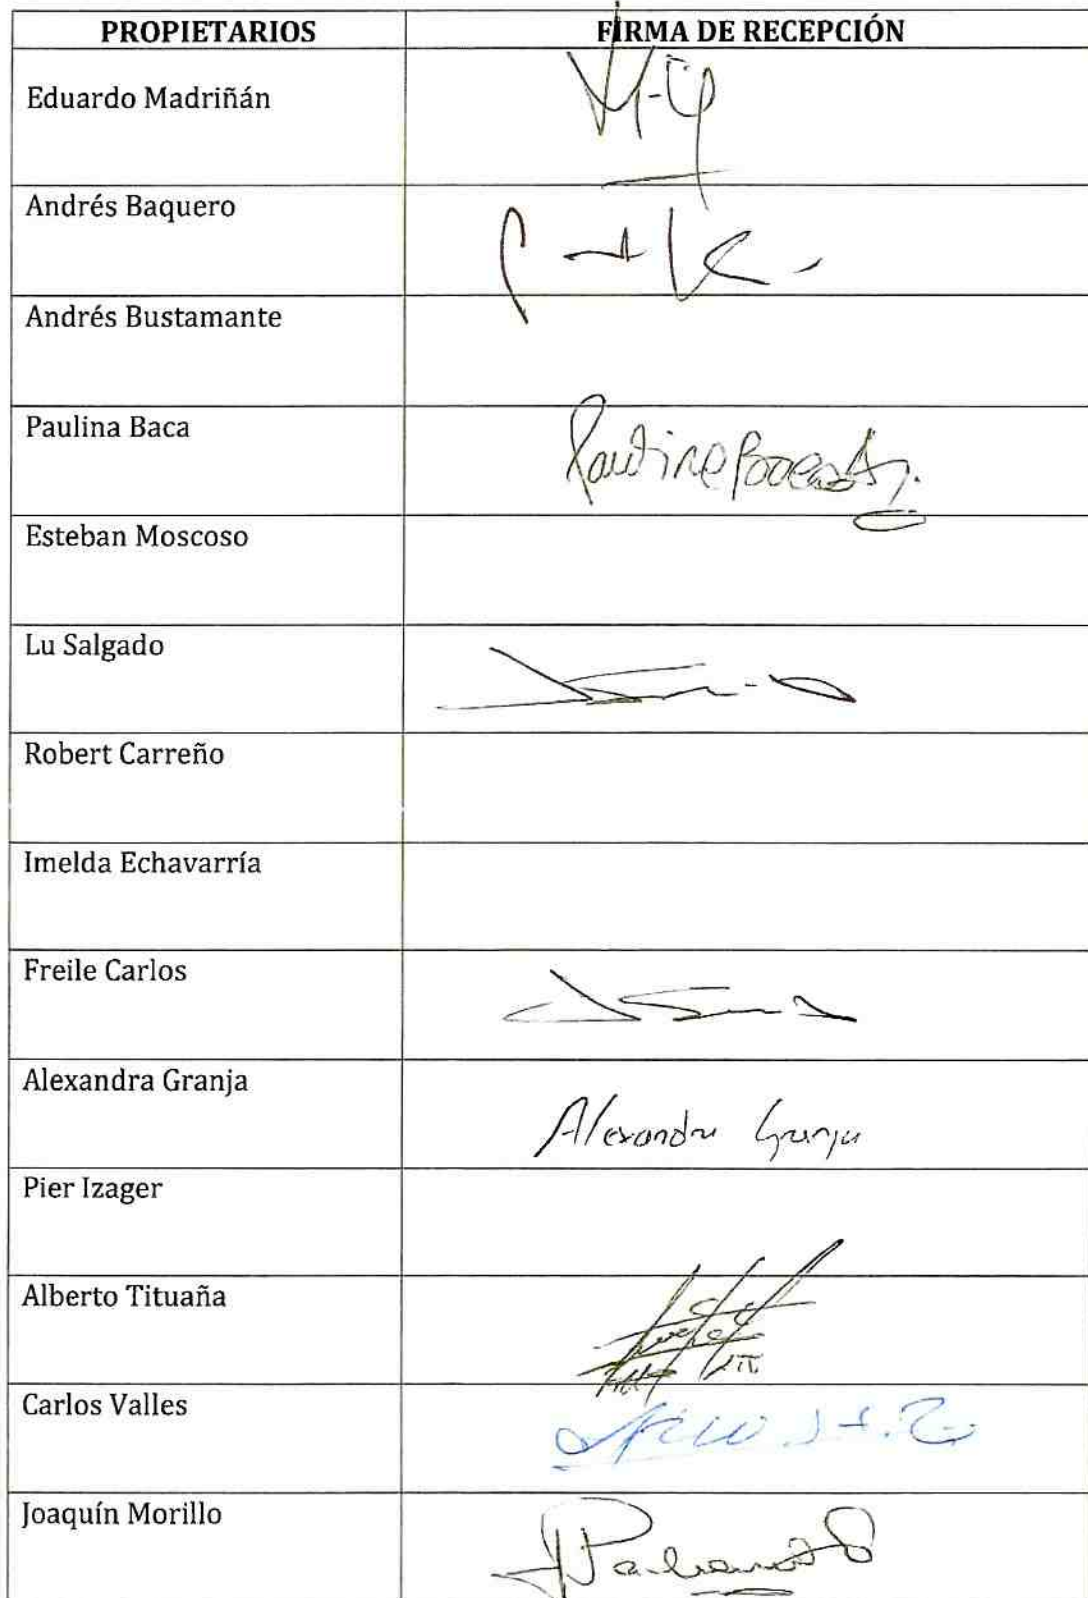 PROPIETARIOS FIRMA DE RECEPCIÓN
Eduardo Madriñán
Andrés Baquero
Andrés Bustamante
Paulina Baca
Esteban Moscoso
Lu Salgado
Robert Carreño
Imelda Echavarría
Freile Carlos
Alexandra Granja
Alexandra Granja
Pier Izager
Alberto Tituaña
Carlos Valles
Joaquín Morillo